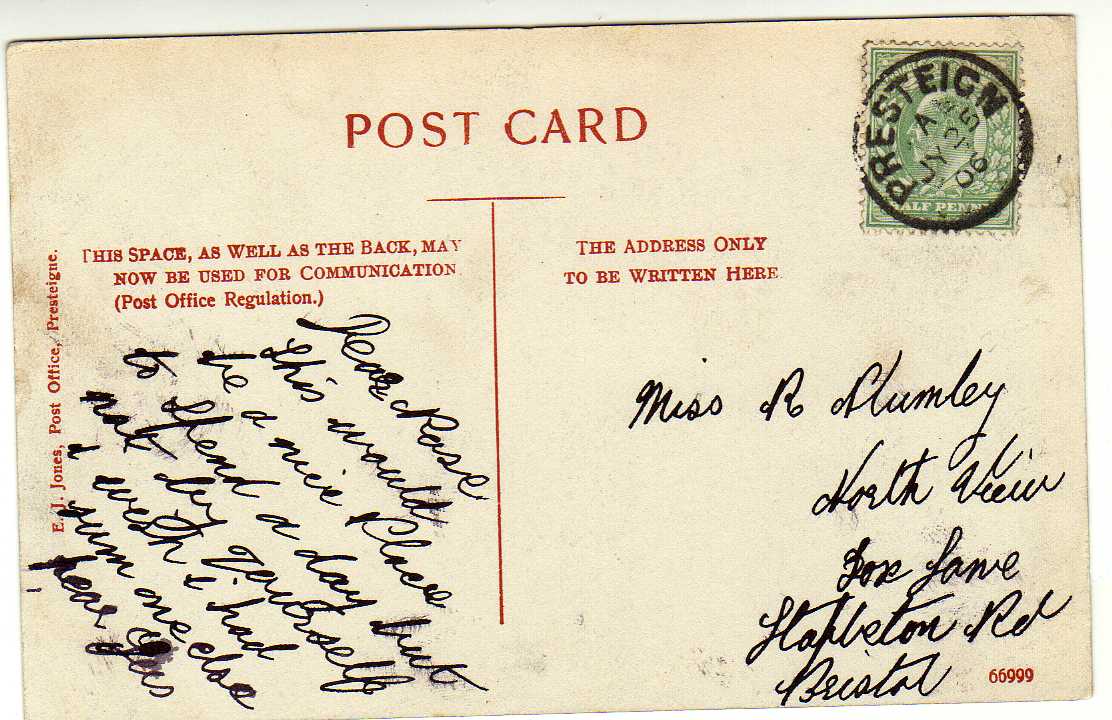 POST CARD
THIS SPACE, AS WELL AS THE BACK, MAY
NOW BE USED FOR COMMUNICATION
(Post Office Regulation.)
THE ADDRESS ONLY
TO BE WRITTEN HERE.
E. J. Jones, Post Office, Presteigne.
PRESTEIGN
A
JY 25
06
HALF PENNY
Dear Rose
this would
be a nice Place
to spend a day but
not by yourself
i wish i had
sum one else
hear
Miss R Plumley
North View
Fox Lane
Stapleton Rd
Bristol
66999